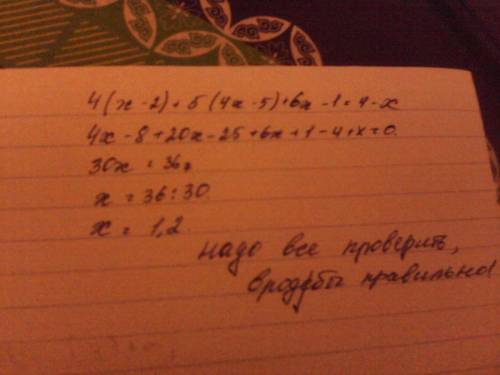 4(x-2)+5(4x-5)+6x-1=4-x
4x-8+20x-25+6x+1-4+x=0
30x = 36
x = 36:30
x = 1,2
надо все проверить,
вродебы правильно